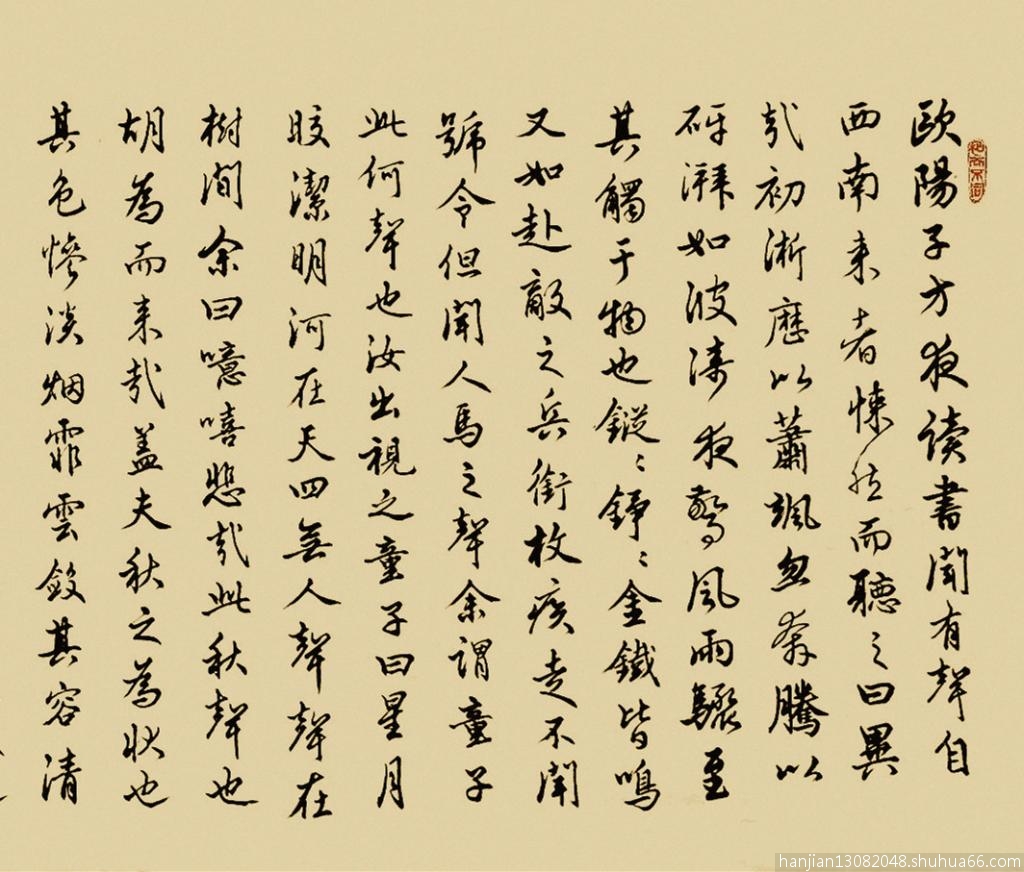 歐陽子方夜读書聞有聲自
西南来者悚然而聽之曰異
哉初淅歷以蕭颯忽奔騰以
砰湃如波涛夜驚風雨驟至
其觸于物也鏦〻錚〻金鐵皆鳴
又如赴敵之兵銜枚疾走不聞
號令但聞人馬之聲余謂童子
此何聲也汝出視之童子曰星月
皎潔明河在天四無人聲聲在
樹間余曰噫嘻悲哉此秋聲也
胡為而来哉盖夫秋之為狀也
其色惨淡烟霏雲斂其容清
hanjian13082048.shuhua66.com